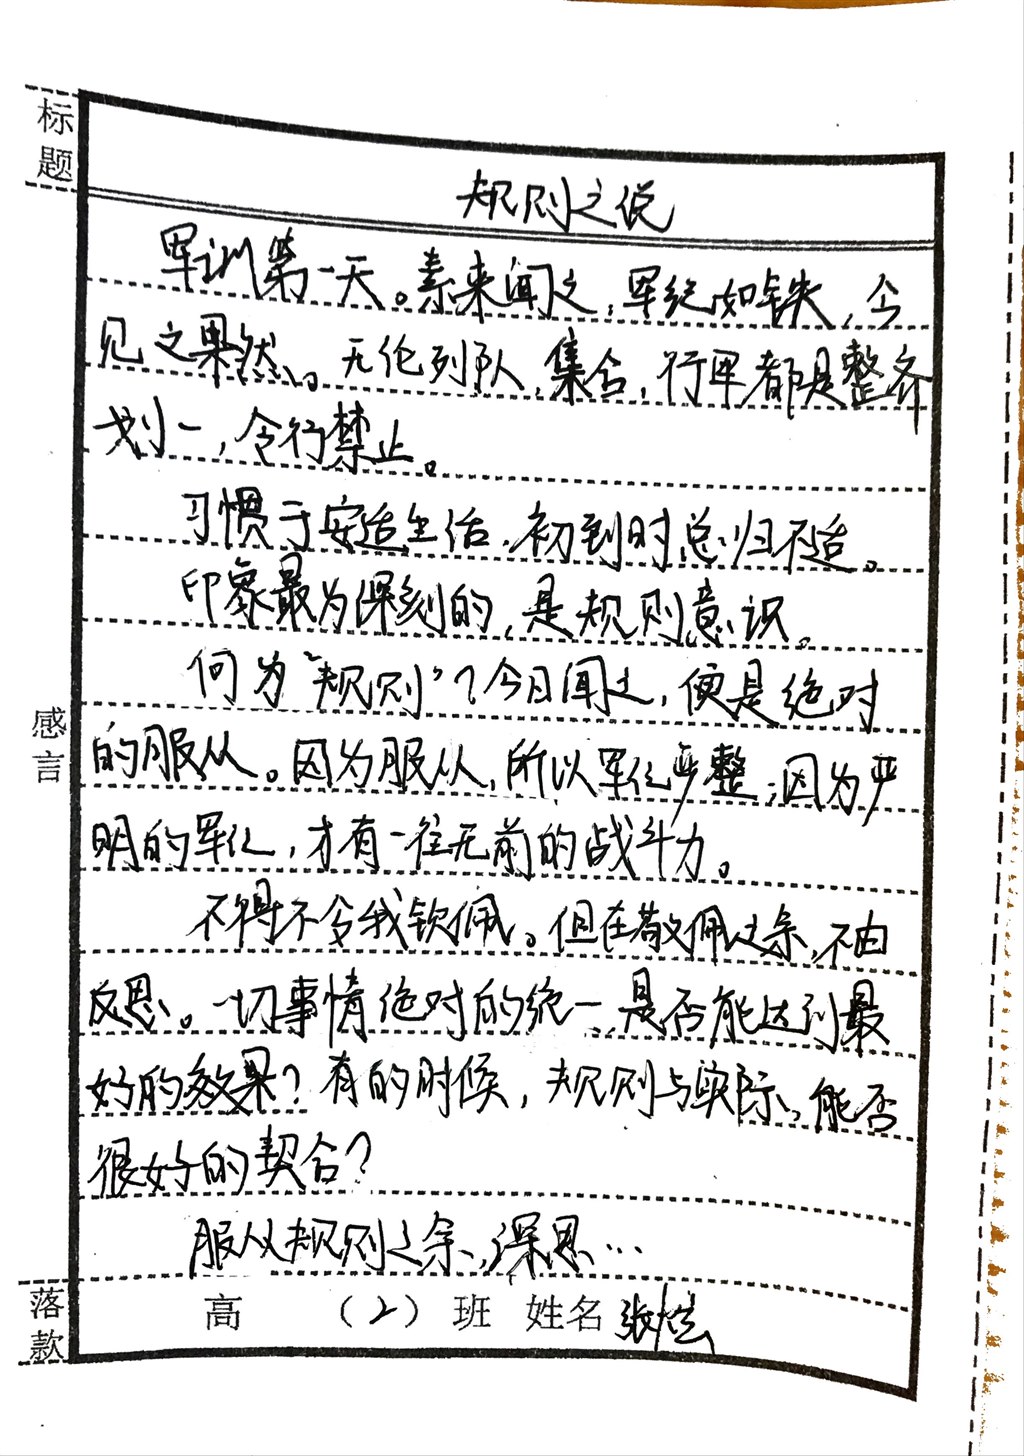 标题
规则之说
军训第一天。素来闻之,军纪如铁,今
见之果然。无伦列队,集合,行军都是整齐
划一,令行禁止。
习惯于安适生活,初到时总归不适。
印象最为深刻的,是规则意识。
何为“规则”?今日闻之,便是绝对
的服从。因为服从,所以军纪严整;因为严
明的军纪,才有一往无前的战斗力。
不得不令我钦佩。但在敬佩之余,不由
反思。一切事情绝对的统一是否能达到最
好的效果?有的时候,规则与实际,能否
很好的契合?
服从规则之余,深思…
感言
落款
高 (2)班 姓名 张